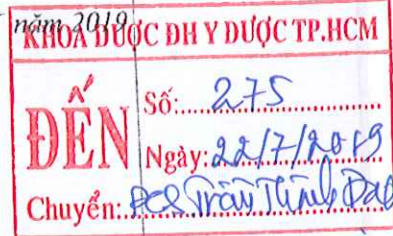 năm 2019
KHOA DƯỢC ĐH Y DƯỢC TP.HCM
ĐẾN
Số: 275
Ngày: 22/7/2019
Chuyển: Trần